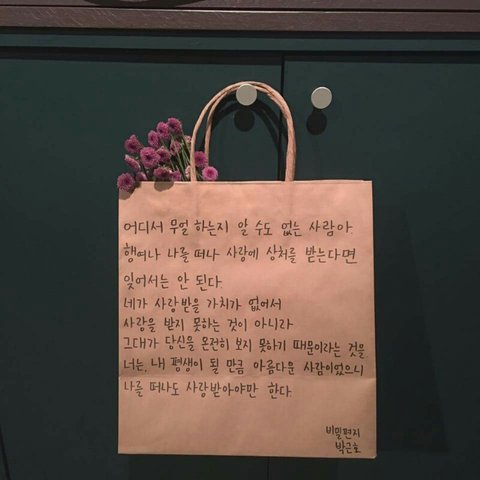 어디서 무얼 하는지 알 수도 없는 사람아.
행여나 나를 떠나 사랑에 상처를 받는다면
잊어서는 안 된다.
네가 사랑받을 가치가 없어서
사랑을 받지 못하는 것이 아니라
그대가 당신을 온전히 보지 못하기 때문이라는 것을
너는, 내 평생이 될 만큼 아름다운 사람이었으니
나를 떠나도 사랑받아야만 한다.
비밀편지
박근호